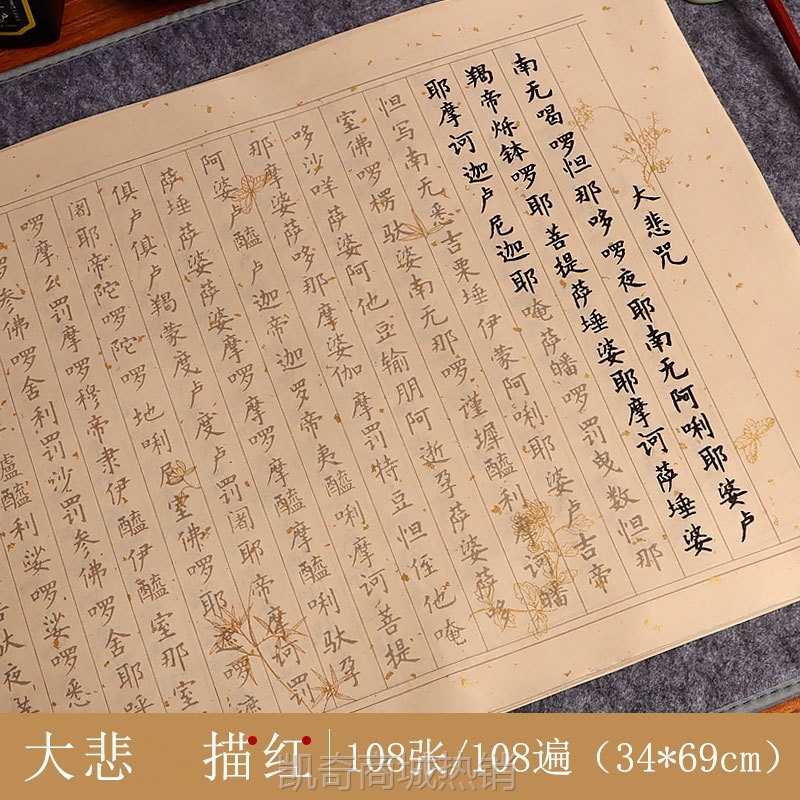 大悲咒
南无喝啰怛那哆啰夜耶南无阿唎耶婆卢
羯帝烁钵啰耶菩提萨埵婆耶摩诃萨埵婆
耶摩诃迦卢尼迦耶唵萨皤啰罚曳数怛那
怛写南无悉吉栗埵伊蒙阿唎耶婆卢吉帝
室佛啰楞驮婆南无那啰谨墀醯利摩诃皤
哆沙咩萨婆阿他豆输朋阿逝孕萨婆萨哆
那摩婆萨哆那摩婆伽摩罚特豆怛侄他唵
阿婆卢醯卢迦帝迦罗帝夷醯唎摩诃菩提
萨埵萨婆萨婆摩啰摩啰摩醯摩醯唎驮孕
俱卢俱卢羯蒙度卢度卢罚阇耶帝摩诃罚
阇耶帝陀啰陀啰地唎尼室佛啰耶遮啰遮
啰摩么罚摩啰穆帝隶伊醯伊醯室那室
啰参佛啰舍利罚沙罚参佛啰舍耶呼
嚧醯利娑啰娑啰悉
驮夜菩
大悲 描红 108张/108遍（34*69cm）
凯奇商城热销